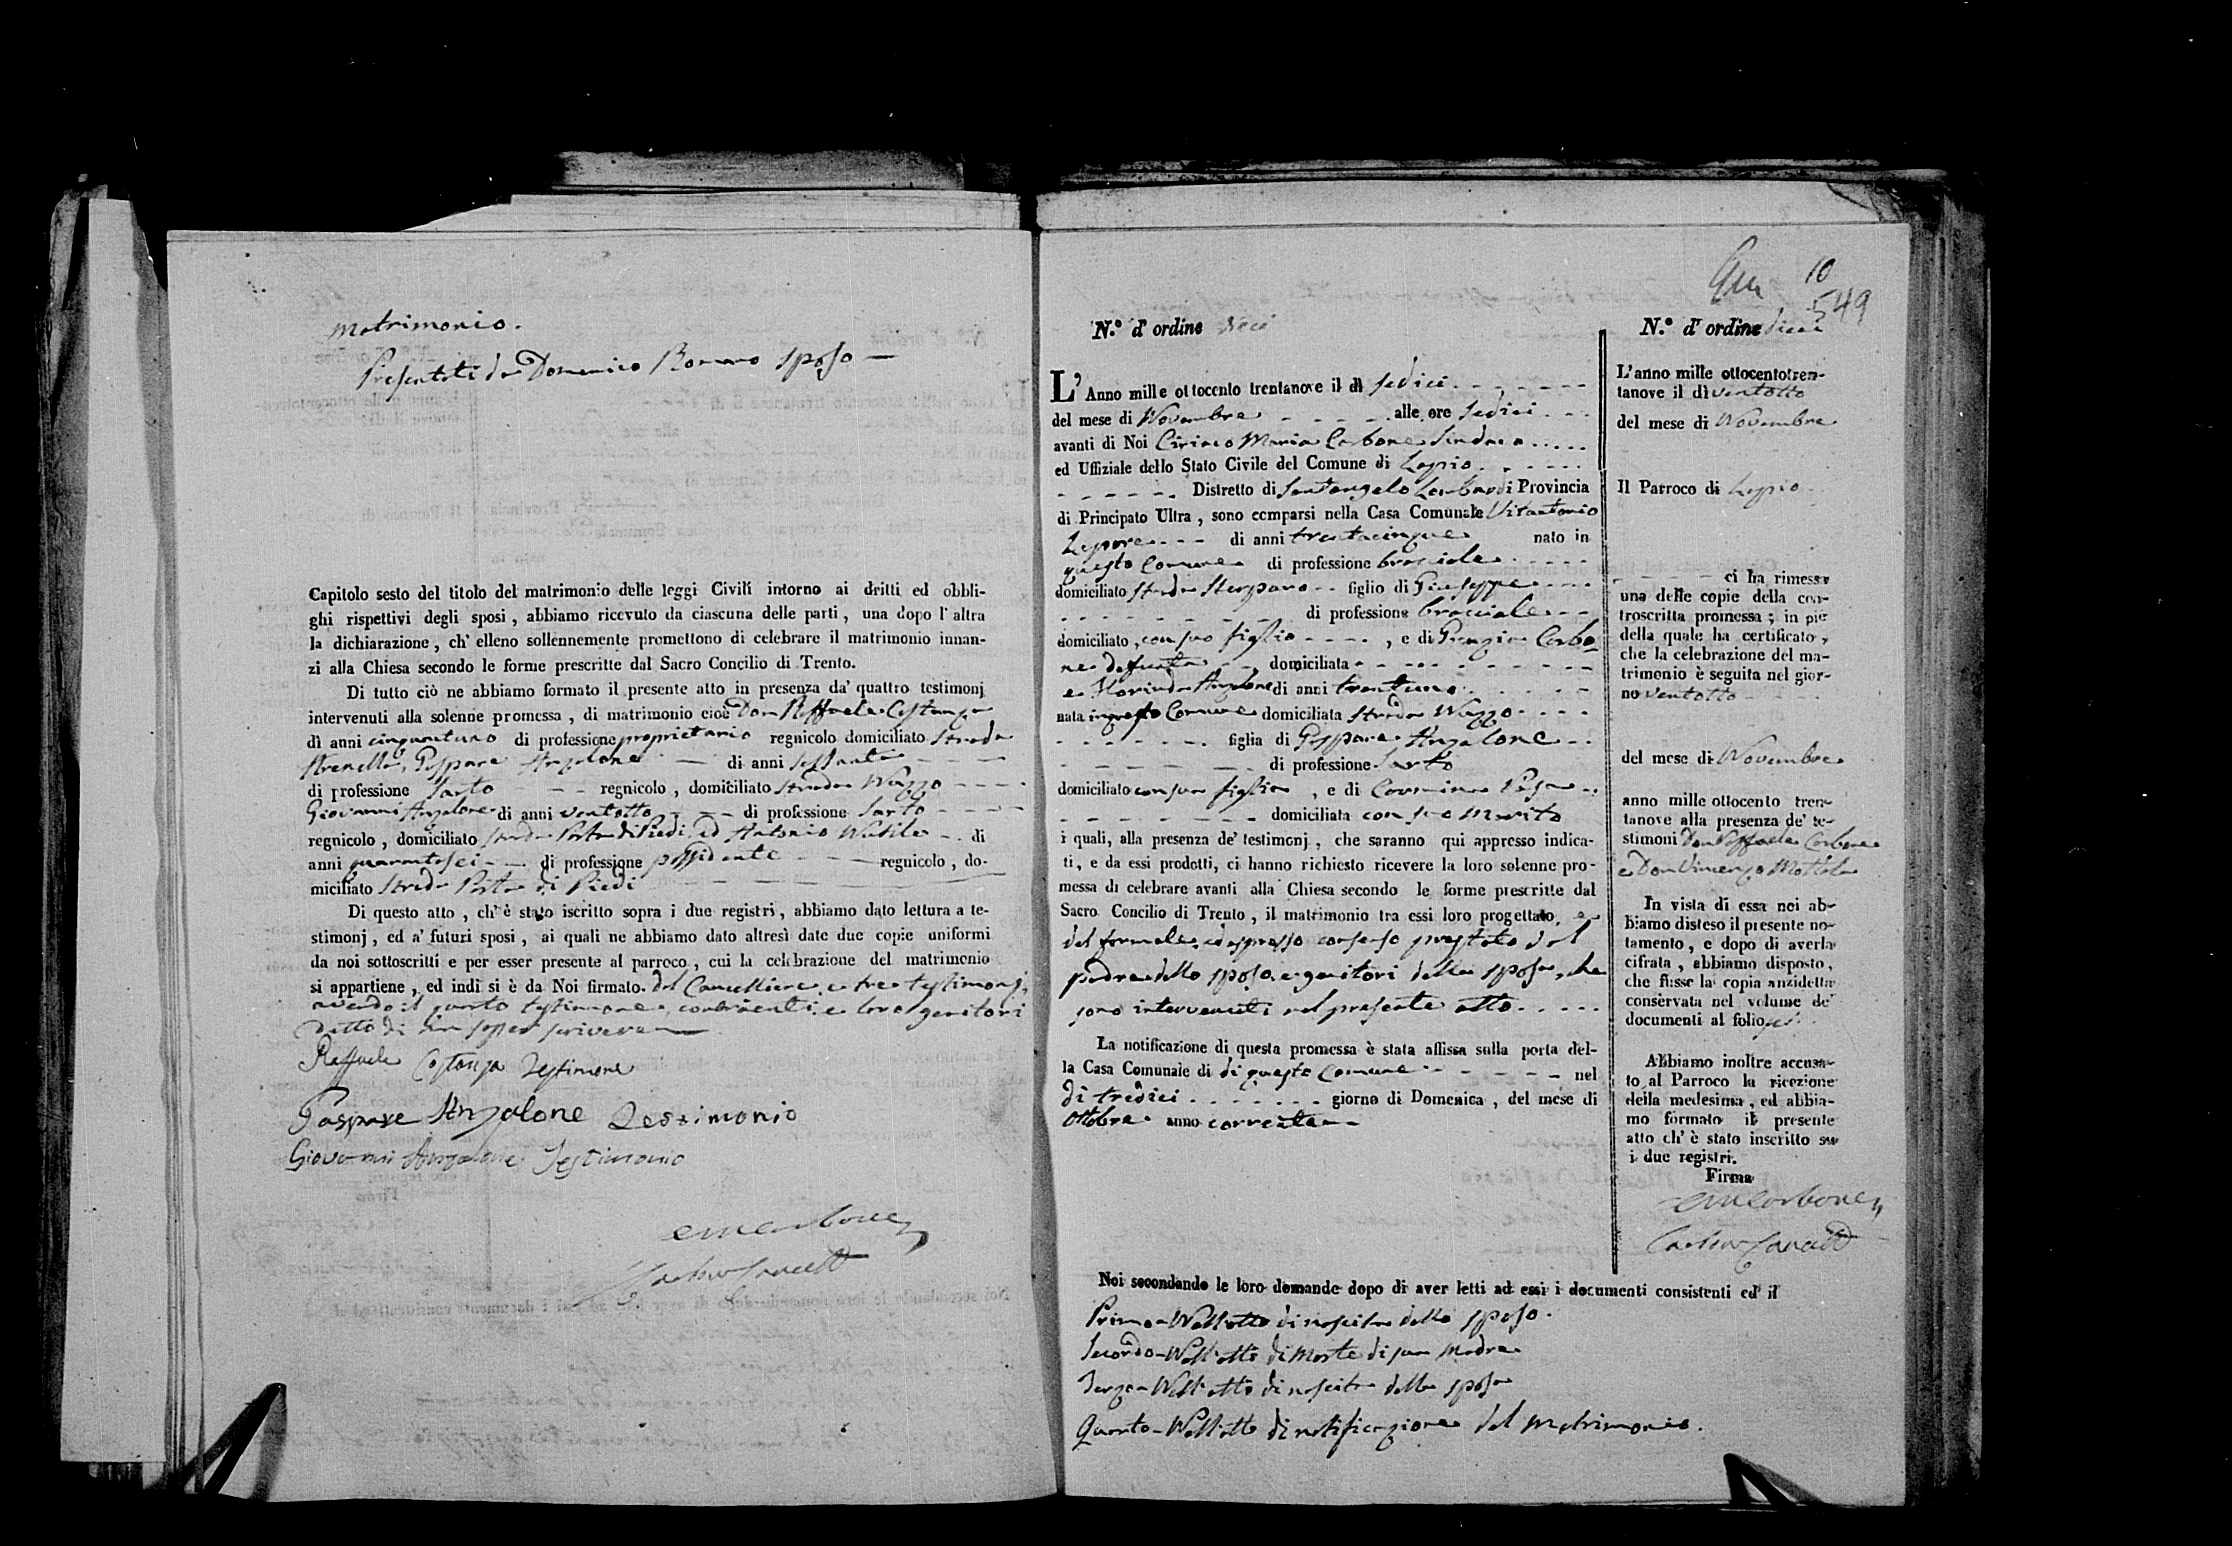 matrimonio.
Presentati da Domenico Romano sposo —
Capitolo sesto del titolo del matrimonio delle leggi Civili intorno ai dritti ed obbli-
ghi rispettivi degli sposi, abbiamo ricevuto da ciascuna delle parti, una dopo l'altra
la dichiarazione, ch'elleno sollennemente promettono di celebrare il matrimonio innan-
zi alla Chiesa secondo le forme prescritte dal Sacro Concilio di Trento.
Di tutto ciò ne abbiamo formato il presente atto in presenza da' quattro testimonj
intervenuti alla solenne promessa, di matrimonio cioè Don Raffaele Costanza
di anni cinquantuno di professione proprietario regnicolo domiciliato Strada
Gaspare Anzalone — di anni sessanta
di professione Sarto regnicolo, domiciliato strada
Giovanni Anzalone di anni ventotto di professione Sarto
regnicolo, domiciliato strada Porta di Piedi, ed Antonio di
anni quarantasei di professione possidente regnicolo, do-
miciliato Strada Porta di Piedi
Di questo atto, ch'è stato iscritto sopra i due registri, abbiamo dato lettura a te-
stimonj, ed a' futuri sposi, ai quali ne abbiamo dato altresì date due copie uniformi
da noi sottoscritti e per esser presente al parroco, cui la celebrazione del matrimonio
si appartiene, ed indi si è da Noi firmato. dal Cancelliere e tre testimonj,
avendo il quarto testimone, contraenti, e loro genitori
detto di non saper scrivere
Raffaele Costanza Testimone
Gaspare Anzalone Testimonio
Giovanni Anzalone Testimonio
10
549
N.º d'ordine dieci
L'Anno mille ottocento trentanove il dì sedici
del mese di Novembre alle ore sedici
avanti di Noi Ciriaco Maria Carbone Sindaco
ed Uffiziale dello Stato Civile del Comune di
Distretto di Santangelo Lombardi Provincia
di Principato Ultra, sono comparsi nella Casa Comunale Vitantonio
Lepore di anni trentacinque nato in
questo Comune di professione bracciale
domiciliato strada figlio di Giuseppe
di professione bracciale
domiciliato, con suo figlio, e di Grazia Carbo-
ne defunta domiciliata
e Florinda Anzalone di anni trentuno
nata in questo Comune domiciliata strada
figlia di Gaspare Anzalone
di professione Sarto
domiciliato con sua figlia, e di Carmina
domiciliata con suo marito
i quali, alla presenza de' testimonj, che saranno qui appresso indica-
ti, e da essi prodotti, ci hanno richiesto ricevere la loro solenne pro-
messa di celebrare avanti alla Chiesa secondo le forme prescritte dal
Sacro Concilio di Trento, il matrimonio tra essi loro progettato, e
del formale, ed espresso consenso prestato dal
padre dello sposo, e genitori della sposa, che
sono intervenuti nel presente atto
La notificazione di questa promessa è stata affissa sulla porta del-
la Casa Comunale di di questo Comune nel
dì tredici giorno di Domenica, del mese di
ottobre anno corrente
N.º d'ordine dieci
L'anno mille ottocentotren-
tanove il dì ventotto
del mese di Novembre
Il Parroco di
ci ha rimesso
una delle copie della con-
troscritta promessa; in piè
della quale ha certificato,
che la celebrazione del ma-
trimonio è seguita nel gior-
no ventotto
del mese di Novembre
anno mille ottocento tren-
tanove alla presenza de' te-
stimoni Don Raffaele Carbone
e Don Vincenzo
In vista di essa noi ab-
biamo disteso il presente no-
tamento, e dopo di averla
cifrata, abbiamo disposto,
che fusse la copia anzidetta
conservata nel volume de'
documenti al folio
Abbiamo inoltre accusa-
to al Parroco la ricezione
della medesima, ed abbia-
mo formato il presente
atto ch'è stato inscritto su
i due registri.
Firma
Noi secondando le loro domande dopo di aver letti ad essi i documenti consistenti ed il
Primo di nascita dello sposo.
Secondo di Morte di sua Madre
Terzo di nascita della sposa
Quarto di notificazione del Matrimonio.